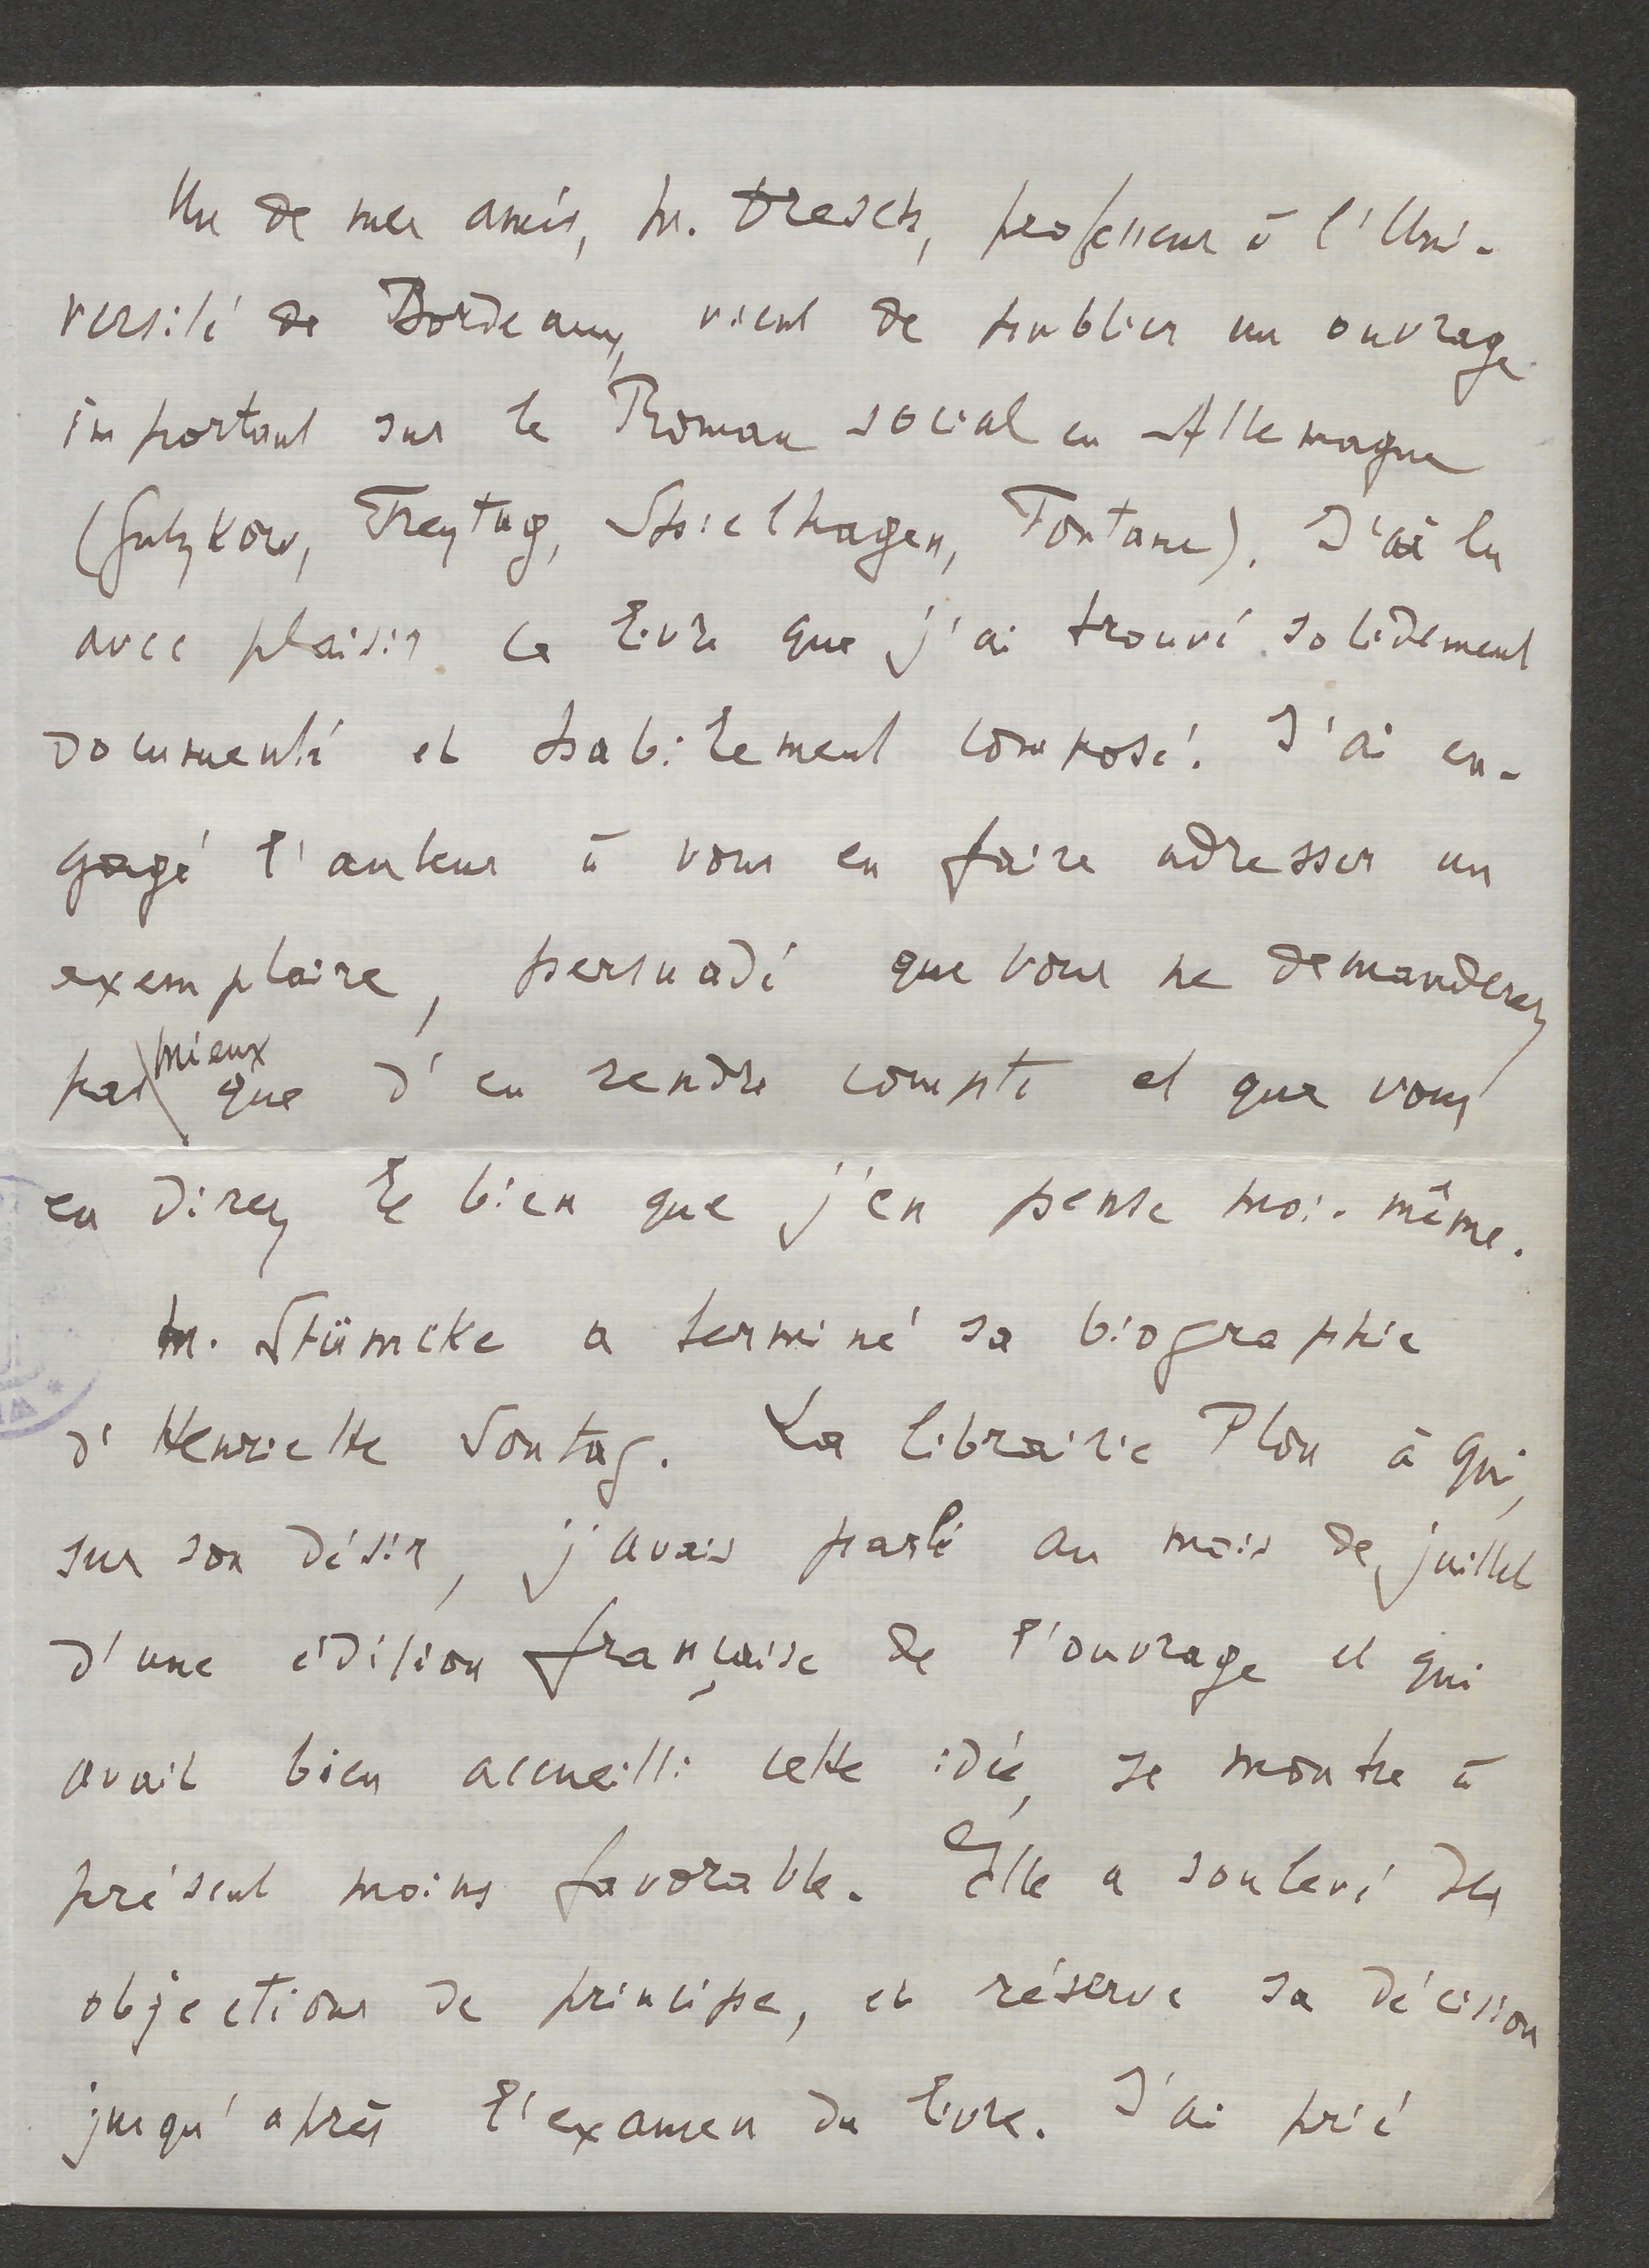 Un de mes amis, M. Dresch, professeur à l'Uni-
versité de Bordeaux, vient de publier un ouvrage
important sur le Roman social en Allemagne
(Gutzkow, Freytag, Spielhagen, Fontane). J'ai lu
avec plaisir ce livre que j'ai trouvé solidement
documenté et habilement composé. J'ai en-
gagé l'auteur à vous en faire adresser un
exemplaire, persuadé que vous ne demanderez
pas mieux que d'en rendre compte et que vous
en direz le bien que j'en pense moi-même.
M. Stümcke a terminé sa biographie
d'Henriette Sontag. La librairie Plon à qui,
sur son désir, j'avais parlé au mois de juillet
d'une édition française de l'ouvrage et qui
avait bien accueilli cette idée, se montre à
présent moins favorable. Elle a soulevé des
objections de principe, et réserve sa décision
jusqu'après l'examen du livre. J'ai prié